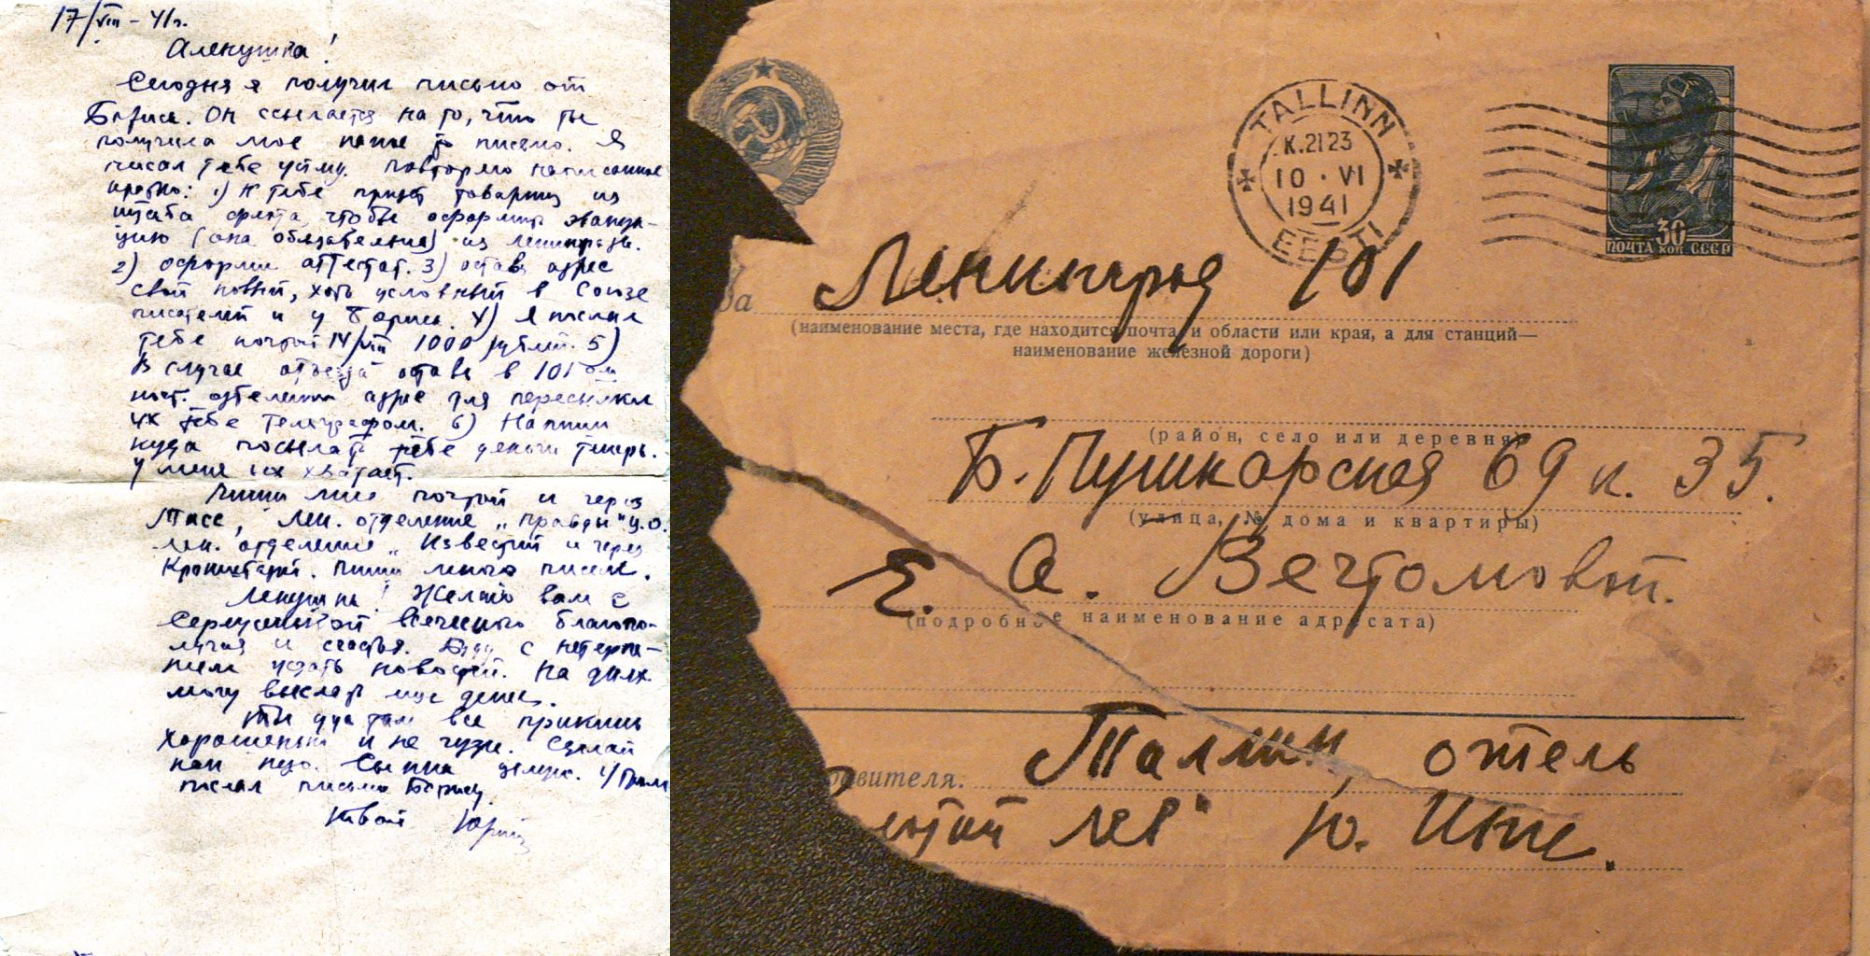 17/VIII – 41 г.
Аленушка!
Сегодня я получил письмо от
Бориса. Он ссылается на то, что ты
получила мое письмо. Я
писал тебе уйму. Повторю написанное
кратко: 1) К тебе придет товарищ из
штаба флота чтобы оформить эвакуа-
цию (она обязательна) из Ленинграда.
2) оформи аттестат. 3) оставь адрес
свой новый, хоть условный в Союзе
писателей и у Бориса. 4) Я послал
тебе почтой 14/VIII 1000 рублей. 5)
В случае отъезда оставь в 101 ом
почт. отделении адрес для пересылки
их тебе телеграфом. 6) Напиши
куда посылать тебе деньги теперь.
У меня их хватает.
Пиши мне почтой и через
ТАСС, Лен. отделение „Правды“
Лен. отделение „Известий и через
Кронштадт. Пиши много писем.
Ленушка! Желаю вам с
Сервушкой всяческого благопо-
лучия и счастья. Буду с нетерпе-
нием ждать новостей. На днях
могу выслать еще денег.
Ты там все прикинь
хорошенько и не чуди. Сделай
как надо. Сынка целую.
писал письмо Борису.
Твой Юрий
TALLINN
K.2123
10·VI
1941
EESTI
30
ПОЧТА КОП СССР
Ленинград 101
(наименование места, где находится почта, и области или края, а для станций—
наименование железной дороги)
(район, село или деревня)
Б. Пушкарская 69 к. 35.
(улица, № дома и квартиры)
Е. А. Вечтомовой.
(подробное наименование адресата)
Таллин, отель
равителя.
лотой лев" Ю. Инге.